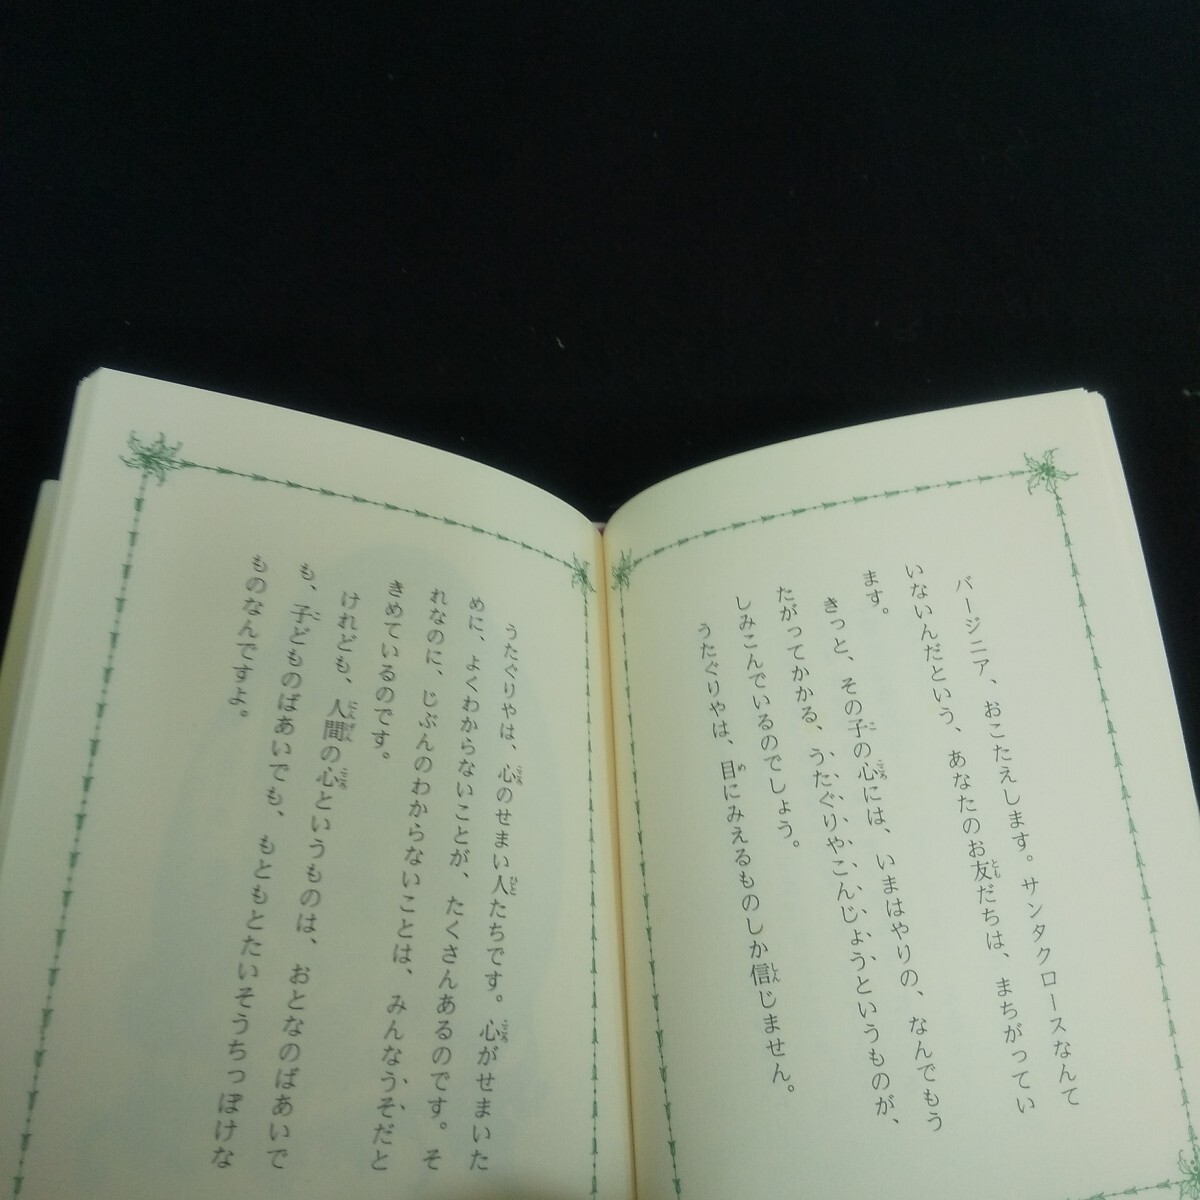 バージニア、おこたえします。サンタクロースなんて
いないんだという、あなたのお友だちは、まちがってい
ます。
きっと、その子の心には、いまはやりの、なんでもう
たがってかかる、うたぐりやこんじょうというものが、
しみこんでいるのでしょう。
うたぐりやは、目にみえるものしか信じません。
うたぐりやは、心のせまい人たちです。心がせまいた
めに、よくわからないことが、たくさんあるのです。そ
れなのに、じぶんのわからないことは、みんなうそだと
きめているのです。
けれども、人間の心というものは、おとなのばあいで
も、子どものばあいでも、もともとたいそうちっぽけな
ものなんですよ。